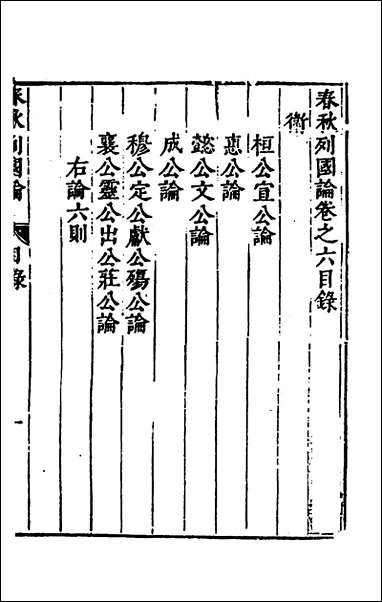 春秋列國論卷之六目錄
衛
桓公宣公論
惠公論
懿公文公論
成公論
穆公定公獻公殤公論
襄公靈公出公莊公論
右論六則
春秋列國論 目錄 一